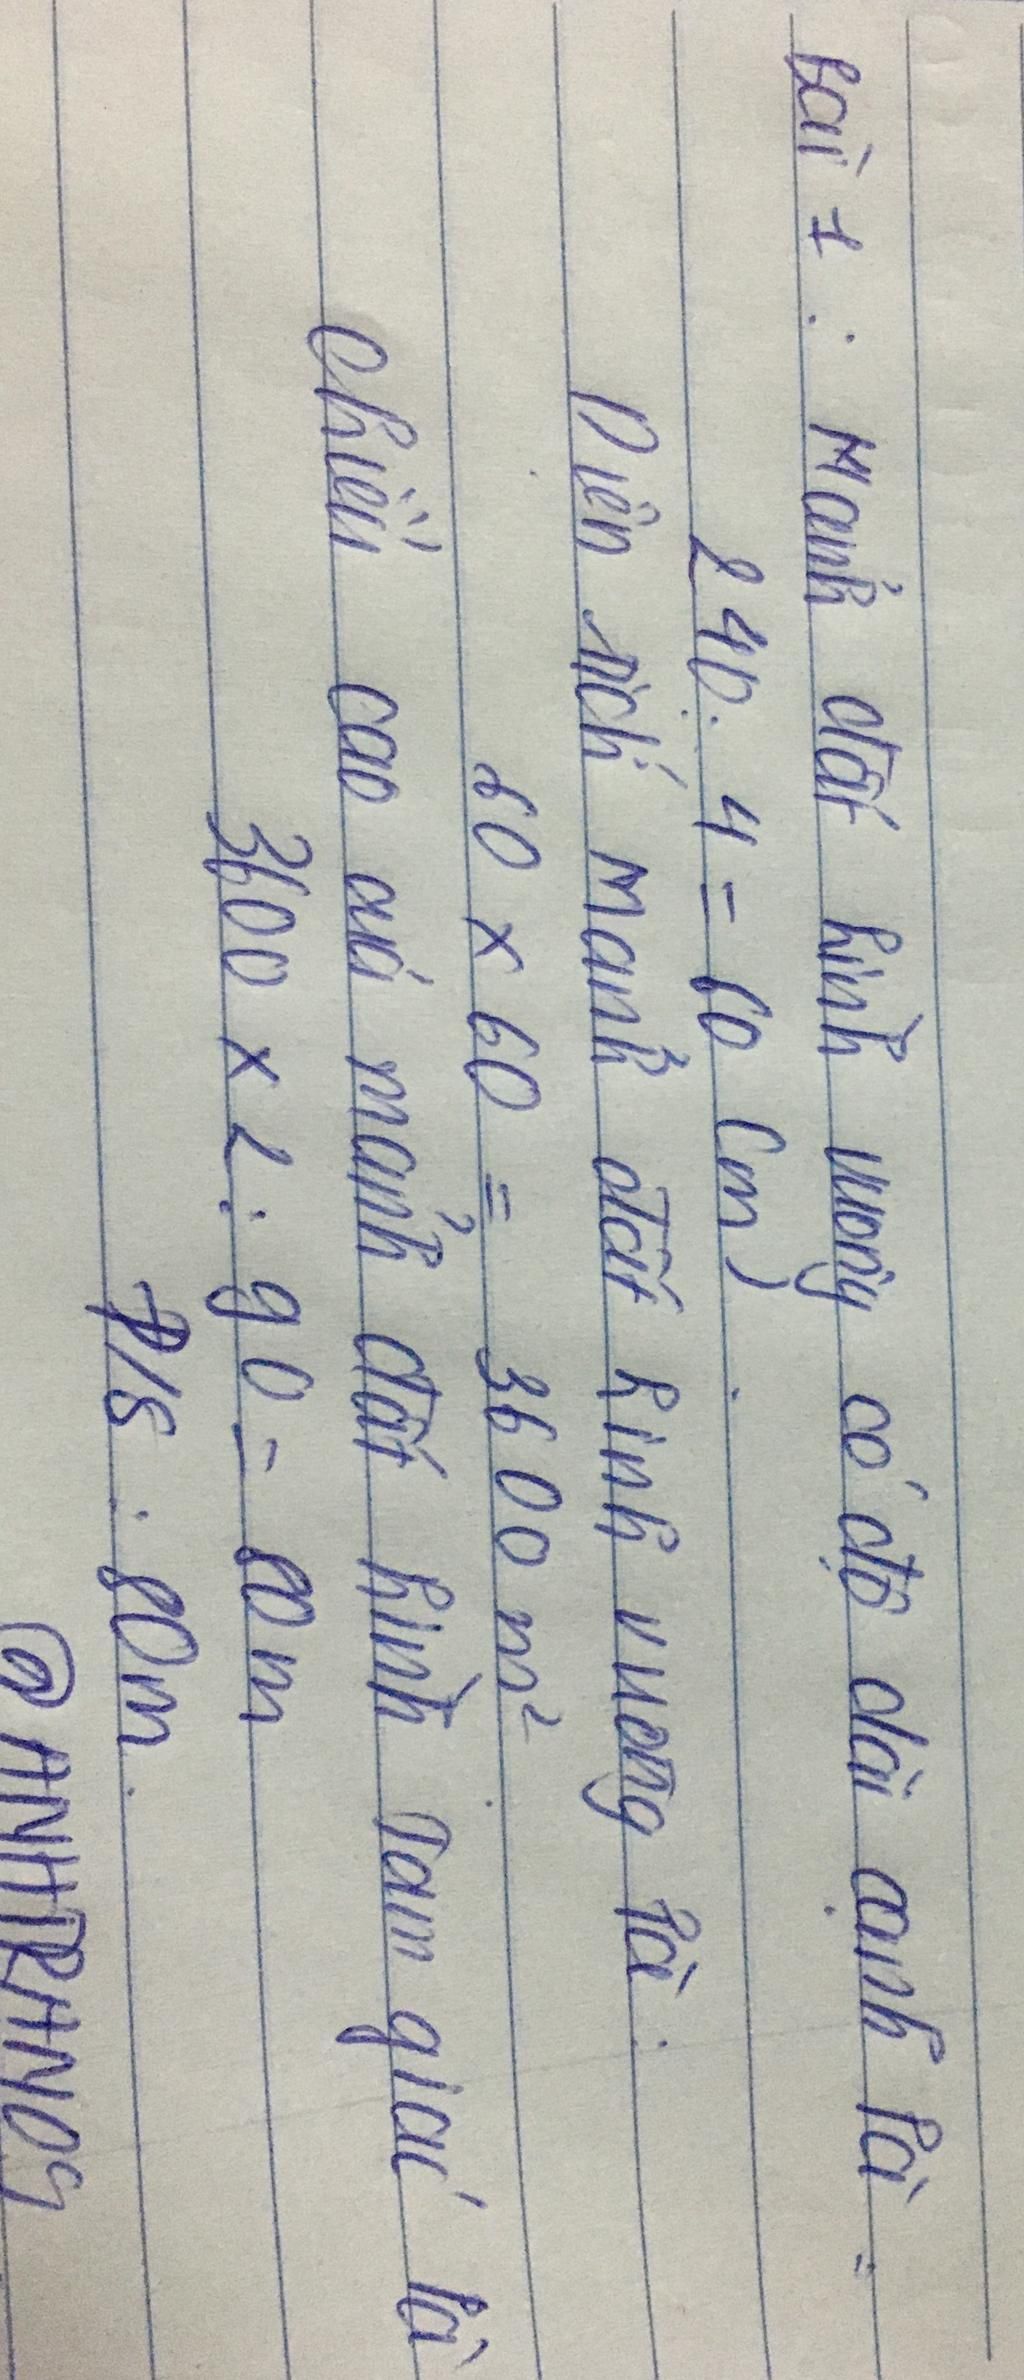 Bài 1: Mảnh đất hình vuông có độ dài cạnh là:
240: 4 = 60 (m).
Diên tích mảnh đất hình vuong là:
60 x 60 = 3600 m²
Chiều cao củả mảnh đất hình Tam giác là
3600 x 2 : 90 = 80 m
Đ/S: 80m.
@ANHTRANOG